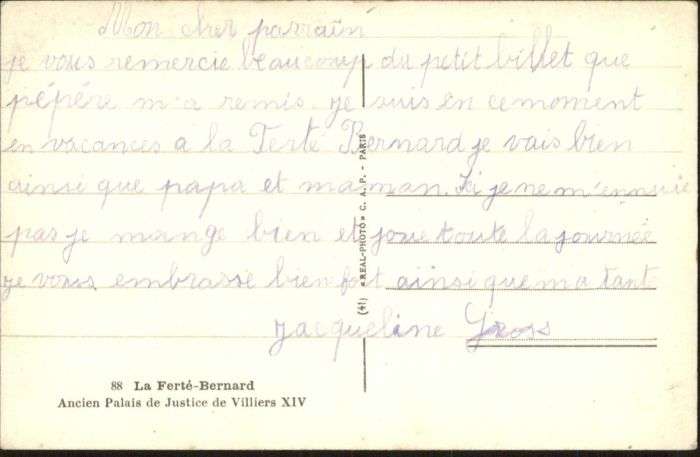 Mon cher parrain
je vous remercie beaucoup du petit billet que
pépére m'a remis je suis en ce moment
en vacances a la Ferté Bernard je vais bien
ainsi que papa et maman. Ici je ne m'ennuie
pas je mange bien et joue toute la journée
je vous embrasse bien fort ainsi que ma tant
Jacqueline
(41) «REAL-PHOTO» C. A. P. - PARIS
88 La Ferté-Bernard
Ancien Palais de Justice de Villiers XIV